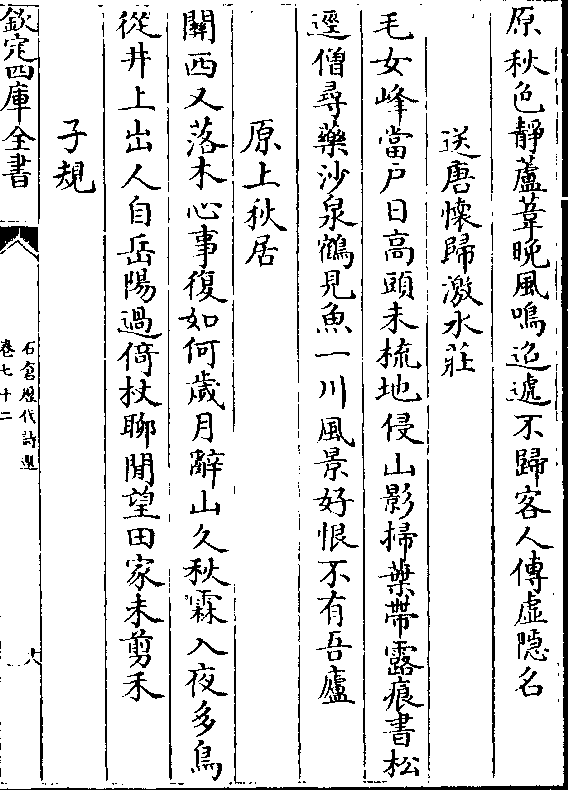 原秋色靜蘆葦晚風鳴迢遞不歸客人傳虛隠名
送唐懷歸激水莊
毛女峰當户日高頭未梳地侵山影掃葉帶露痕書松
逕僧尋藥沙泉鶴見魚一川風景好恨不有吾廬
原上秋居
關西又落木心事復如何歲月辭山久秋霖入夜多鳥
從井上出人自岳陽過倚杖聊閒望田家未剪禾
子規
欽定四庫全書
石倉歷代詩選
卷七十二